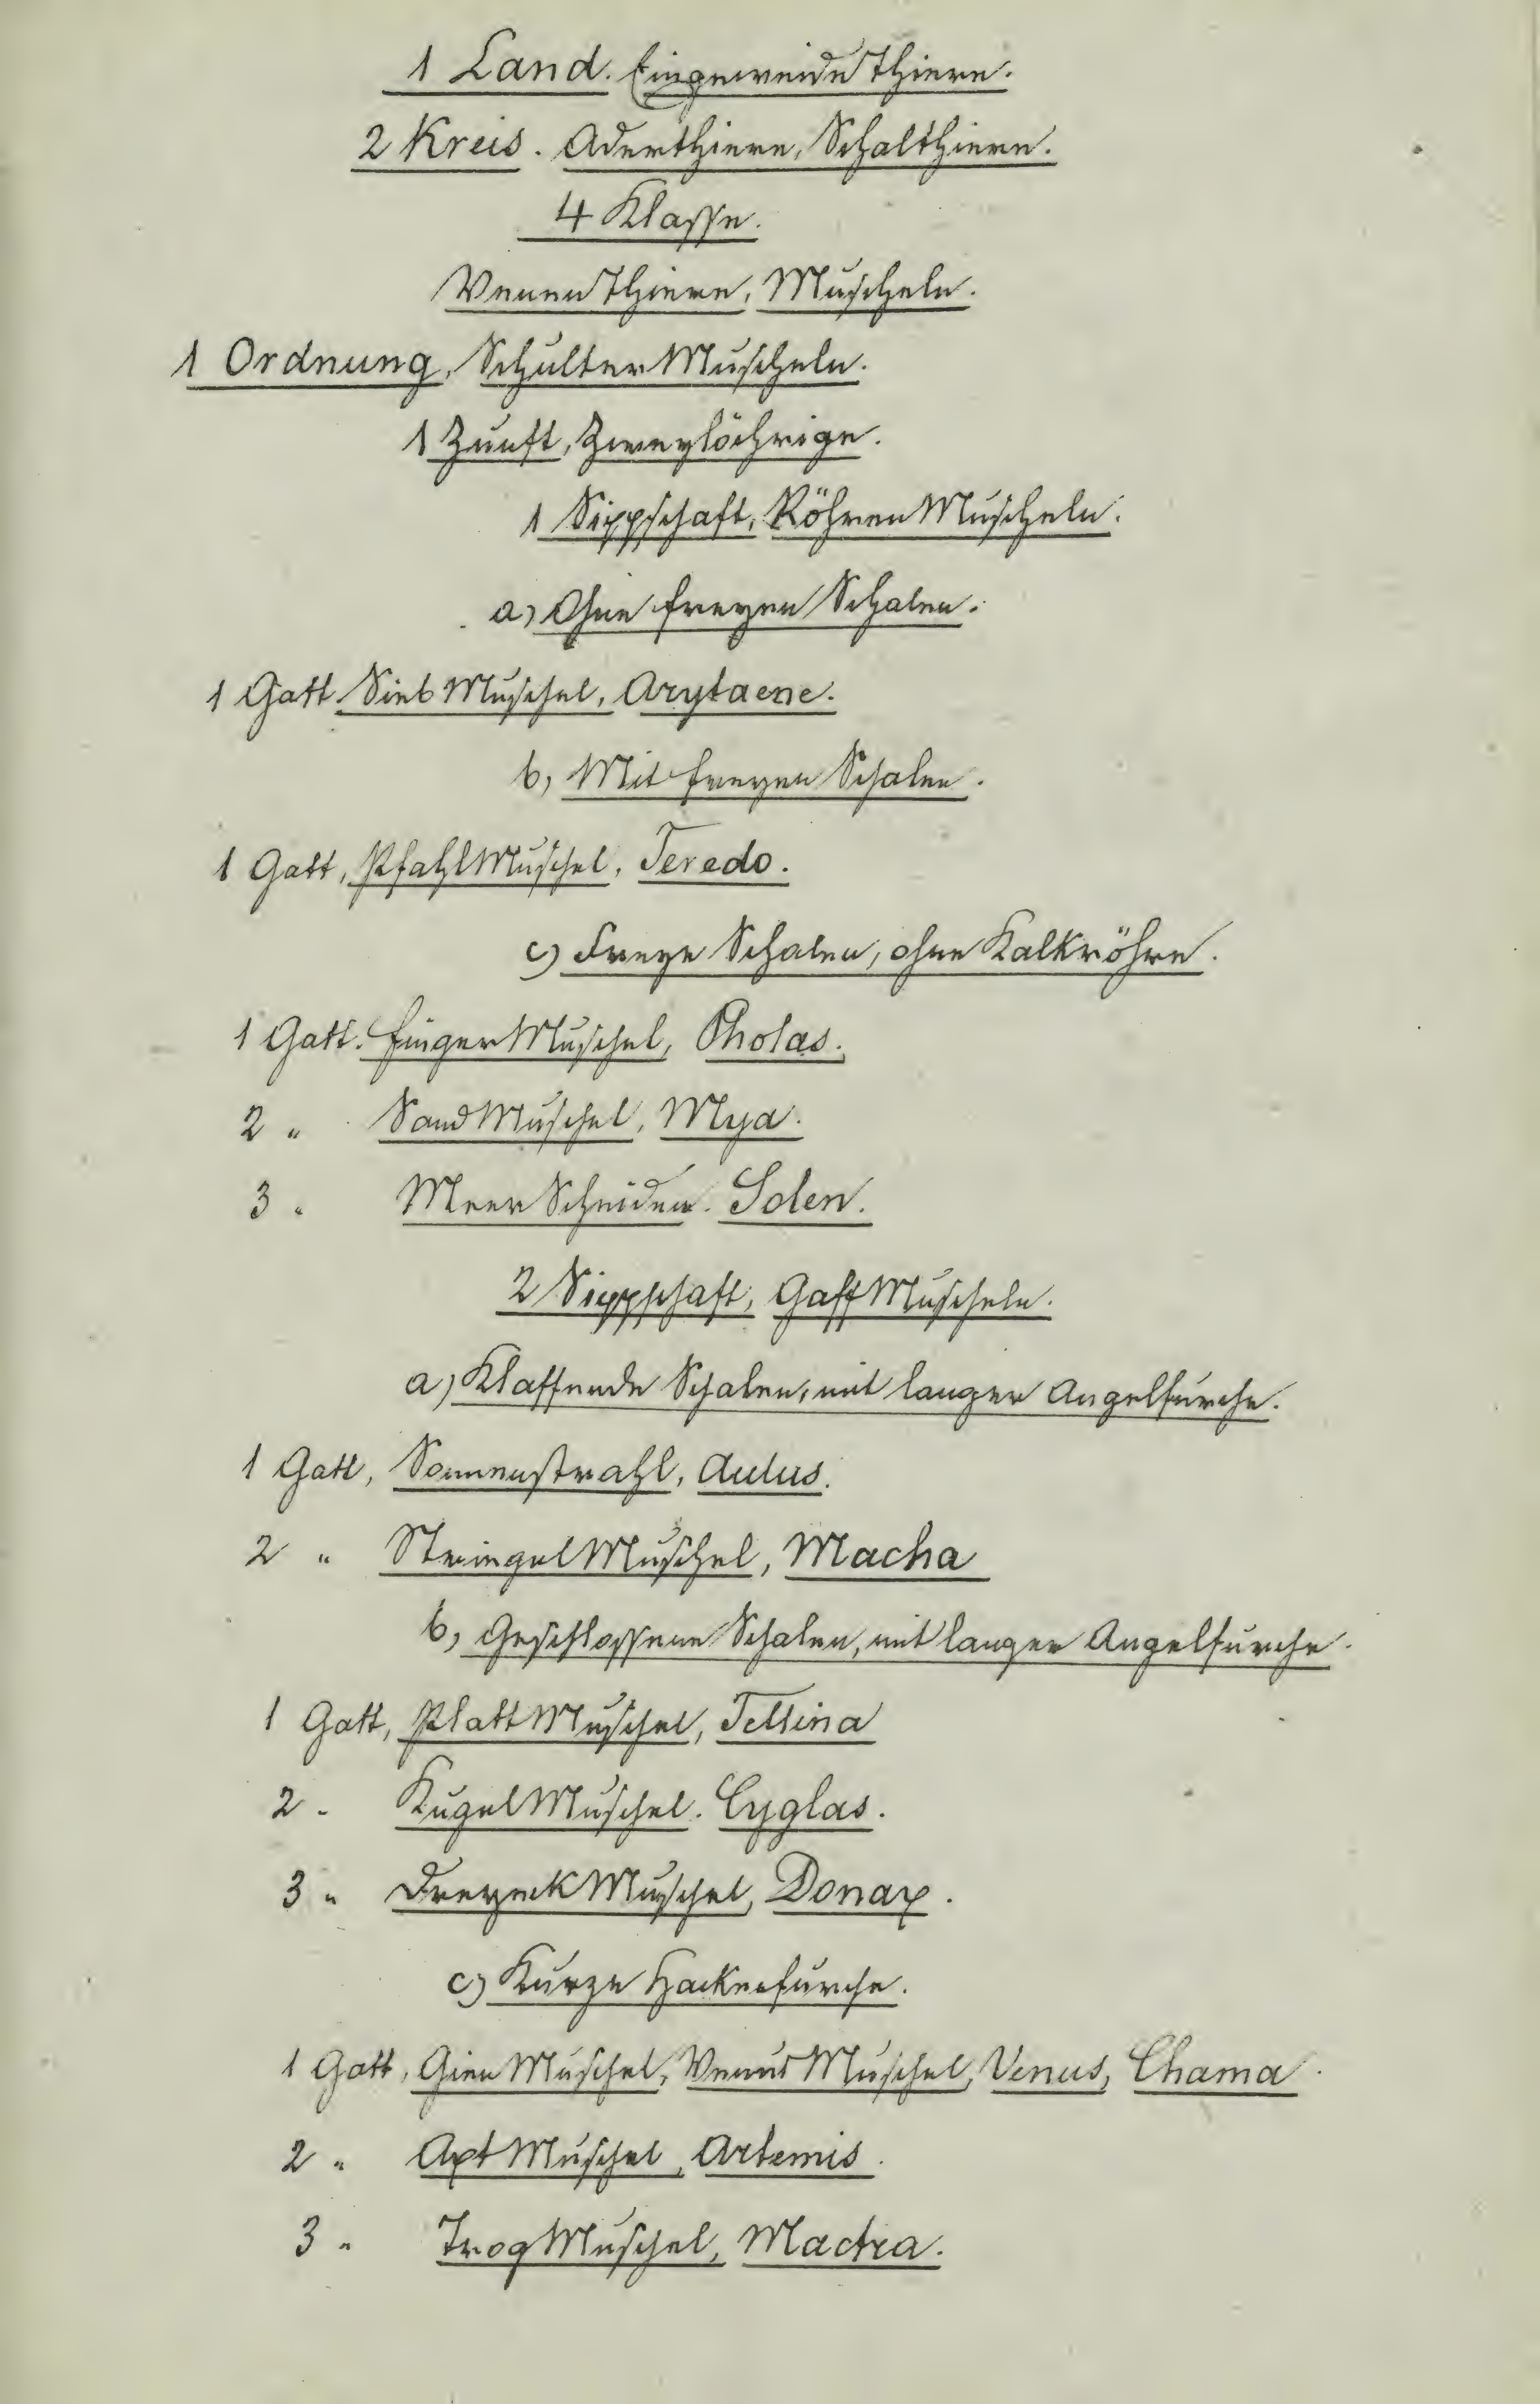 1 Land. Eingeweide Thiere.
2 Kreis. Aderthiere, Schalthiere.
4 Klasse.
Venen Thiere, Muscheln.
1 Ordnung, Schulter Muscheln.
1 Zunft, Zweylöchrige.
1 Sippschaft, Röhren Muscheln.
a) Ohne freyen Schalen.
1 Gatt. Sieb Muschel, Arytaene.
b, Mit freyen Schalen.
1 Gatt, Pfahl Muschel, Teredo.
c) Freye Schalen, ohne Kalkröhre.
1 Gatt. Finger Muschel, Pholas.
2 " Sand Muschel, Mya.
3 " Meer Scheiden. Solen.
2 Sippschaft, Gaff Muscheln.
a) Klaffende Schalen, mit langer Angelfurche.
1 Gatt, Sonnenstrahl, Aulus.
2 " Stringel Muschel, Macha
b, Geschlossene Schalen, mit langer Angelfurche.
1 Gatt, Platt Muschel, Tellina
2 " Kugel Muschel. Cyglas.
3 " Dreyeck Muschel, Donax.
c) Kurze Hackenfurche.
1 Gatt, Gien Muschel, Venus Muschel, Venus, Chama.
2 " Axt Muschel, Artemis.
3 " Trog Muschel, Mactra.